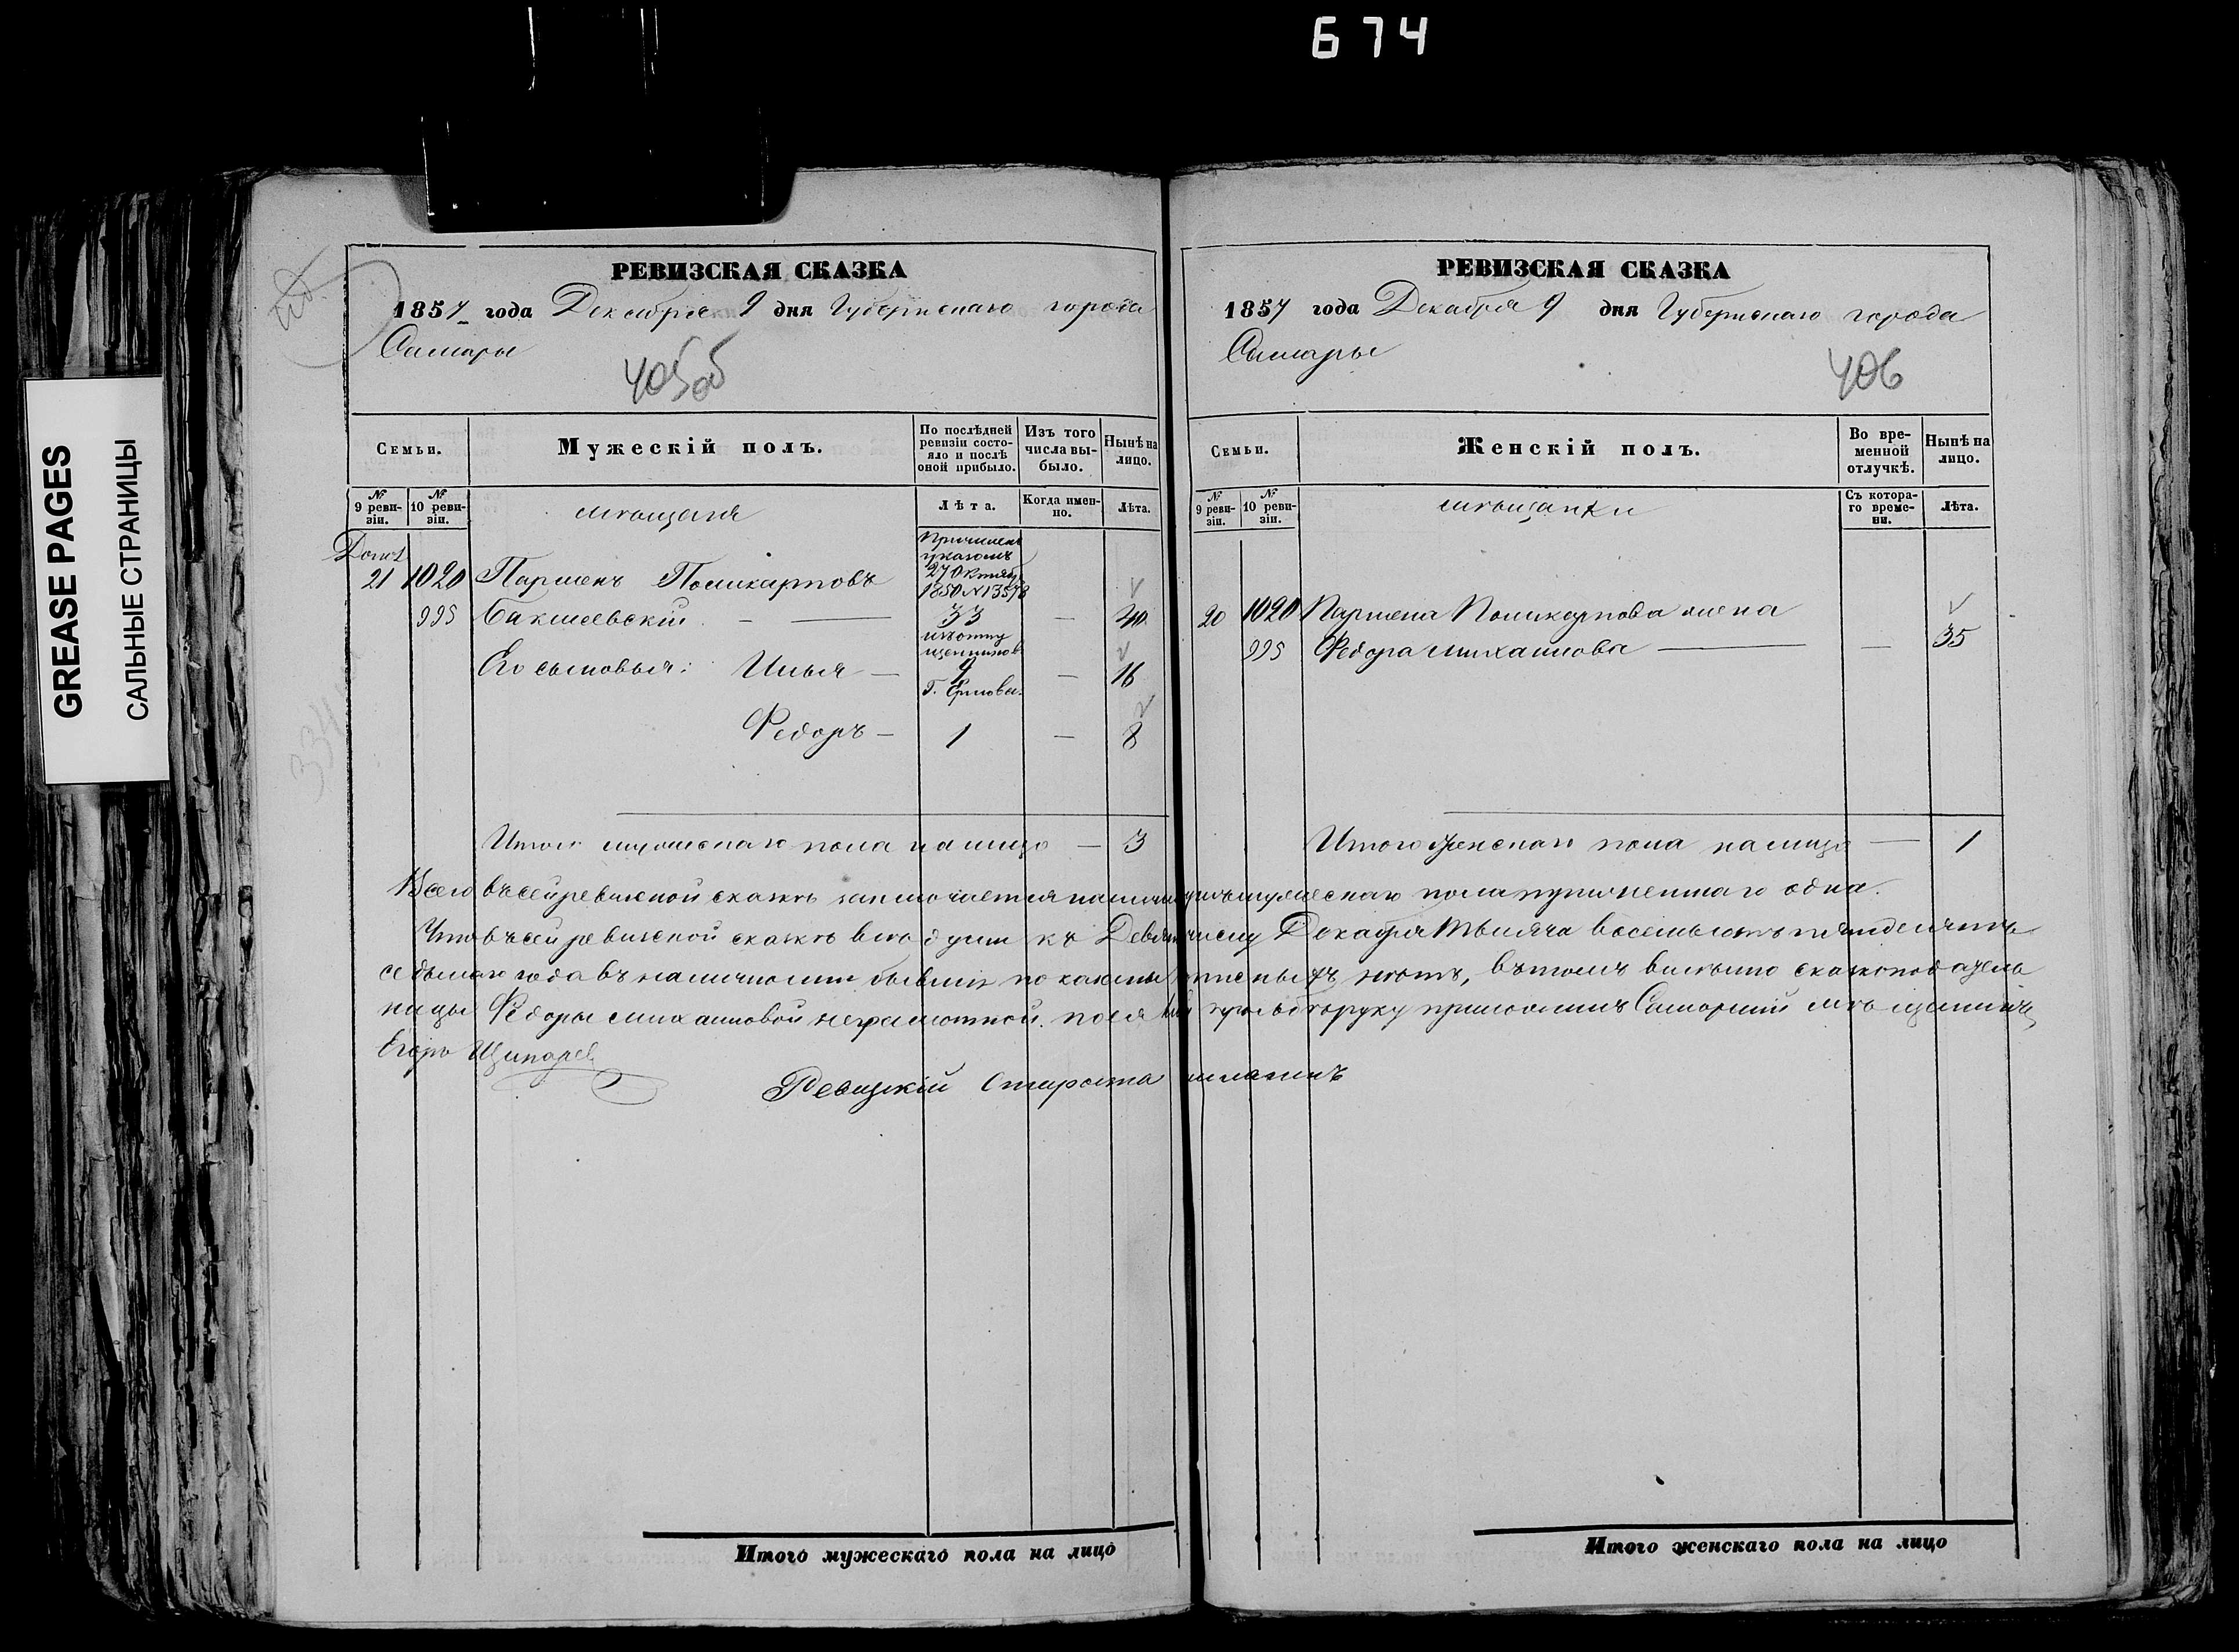 674
GREASE PAGES
САЛЬНЫЕ СТРАНИЦЫ
РЕВИЗСКАЯ СКАЗКА
1857 года Декабря 9 дня Губернскаго города
Самары
405об
Семьи.
Мужескій полъ.
По послѣдней ревизіи состояло и послѣ оной прибыло.
Изъ того числа выбыло.
Нынѣ на лицо.
№ 9 ревизіи.
№ 10 ревизіи.
мѣщаня
Лѣта.
Когда именно.
Лѣта.
Допол
Причислен
указомъ
27 Октяб
1850 № 13578
21 1020 Парменъ Поликарповъ
995 Бакшеевскій — 33 — 40
изъ
Его сыновья: Илья — 9 — 16
Федоръ — 1 — 8
Итого мужескаго пола на лицо — 3
РЕВИЗСКАЯ СКАЗКА
1857 года Декабря 9 дня Губернскаго города
Самары
406
Семьи.
Женскій полъ.
Во временной отлучкѣ.
Нынѣ на лицо.
№ 9 ревизіи.
№ 10 ревизіи.
мѣщанки
Съ котораго времени.
Лѣта.
20 1020 Пармена Поликарпова жена
995 Федора Михайлова — — 35
Итого женскаго пола на лицо — 1
Всего въ сей ревизской сказкѣ заключается на лицо мужескаго пола три женскаго одна.
Что въ сей ревизской сказкѣ всѣ души къ Девятому числу Декабря тысяча восемьсотъ пятьдесятъ
седьмаго года въ наличности бывшія показаны въ томъ
Федоры Михайловой неграмотной, по ея прозьбѣ руку приложилъ Самарскій мѣщанинъ
Егоръ
Ревизскій Староста
Итого мужескаго пола на лицо
Итого женскаго пола на лицо